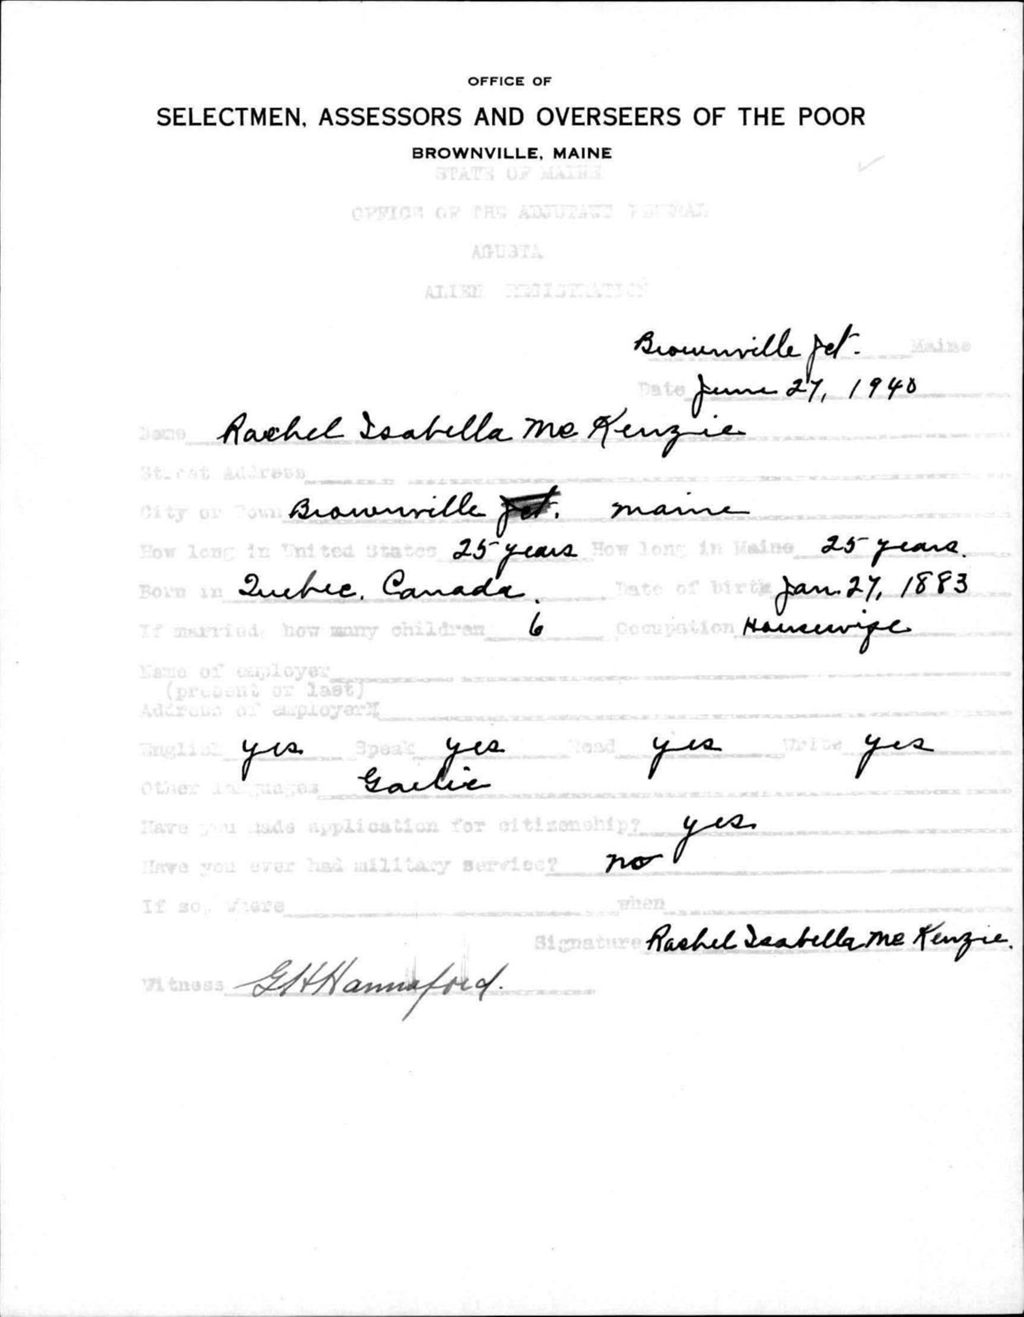 OFFICE OF
SELECTMEN, ASSESSORS AND OVERSEERS OF THE POOR
BROWNVILLE, MAINE
STATE OF MAINE
OFFICE OF THE ADJUTANT GENERAL
AGUSTA
ALIEN REGISTRATION
Brownville Jct. Maine
Date June 27, 1940
Name Rachel Isabella Mc Kenzie
Street Address
City or Town Brownville Jct. Maine
How long in United States 25 years How long in Maine 25 years.
Born in Quebec, Canada. Date of birth Jan. 27, 1883
If married, how many children 6 Occupation Housewife
Name of employer
(present or last)
Address of employer
English yes Speak yes Read yes Write yes
Other languages Gaelic
Have you made application for citizenship? yes
Have you ever had military service? no
If so, where when
Signature Rachel Isabella Mc Kenzie.
Witness G H Hannaford.